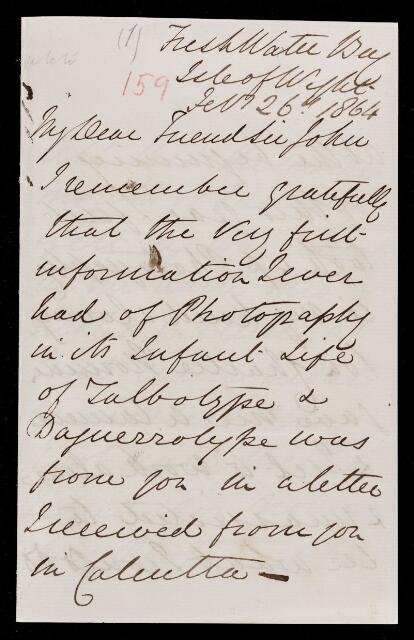 (1)
159
Fresh Water Bay
Isle of Wight
Feb 26th 1864
My Dear Friend Sir John
I remember gratefully
that the very first
information I ever
had of Photography
in its Infant Life
of Talbotype &
Daguerrotype was
from you in a letter
I received from you
in Calcutta —